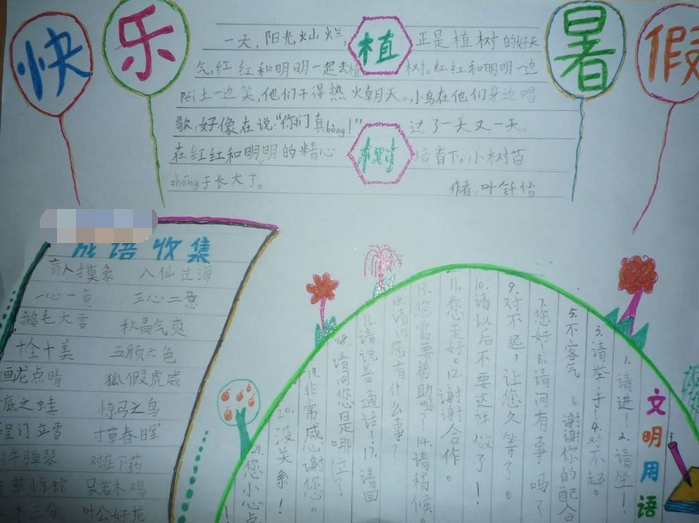 快乐暑假
植树
一天，阳光灿烂 正是植树的好天
气，红红和明明一起去植树，红红和明明一边
péi土一边笑，他们干得热火朝天。小鸟在他们身边唱
歌，好像在说：“你们真bàng！” 过了一天又一天，
在红红和明明的精心 培育下，小树苗
zhōng于长大了。
作者：叶
成语收集
盲人摸象 八仙过海
一心一意 三心二意
鹅毛大雪 秋高气爽
十全十美 五颜六色
画龙点睛 狐假虎威
底之蛙 惊弓之鸟
程门立雪 寸草春晖
牛弹琴 对症下药
呆若木鸡
木三分 叶公好龙
文明用语
1.请进！2.请坐！
3.请举手 4.对不起。
5.不客气 6.谢谢你的配合
7.您好 8.请问有事吗？
9.对不起，让您久等了？
10.请以后不要这样做了！
11.祝您走好 12.谢谢合作。
13.您需要帮助吗？14.请稍候。
15.请问您有什么事？
16.请说普通话！17.请回
18.请问您是哪位？
19.非常感谢您。
20.没关系！
21.您小心点